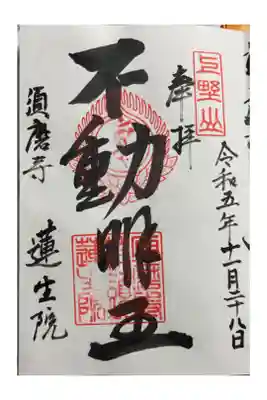 奉拝
令和五年十一月二十八日
不動明王
須磨寺
蓮生院
上野山